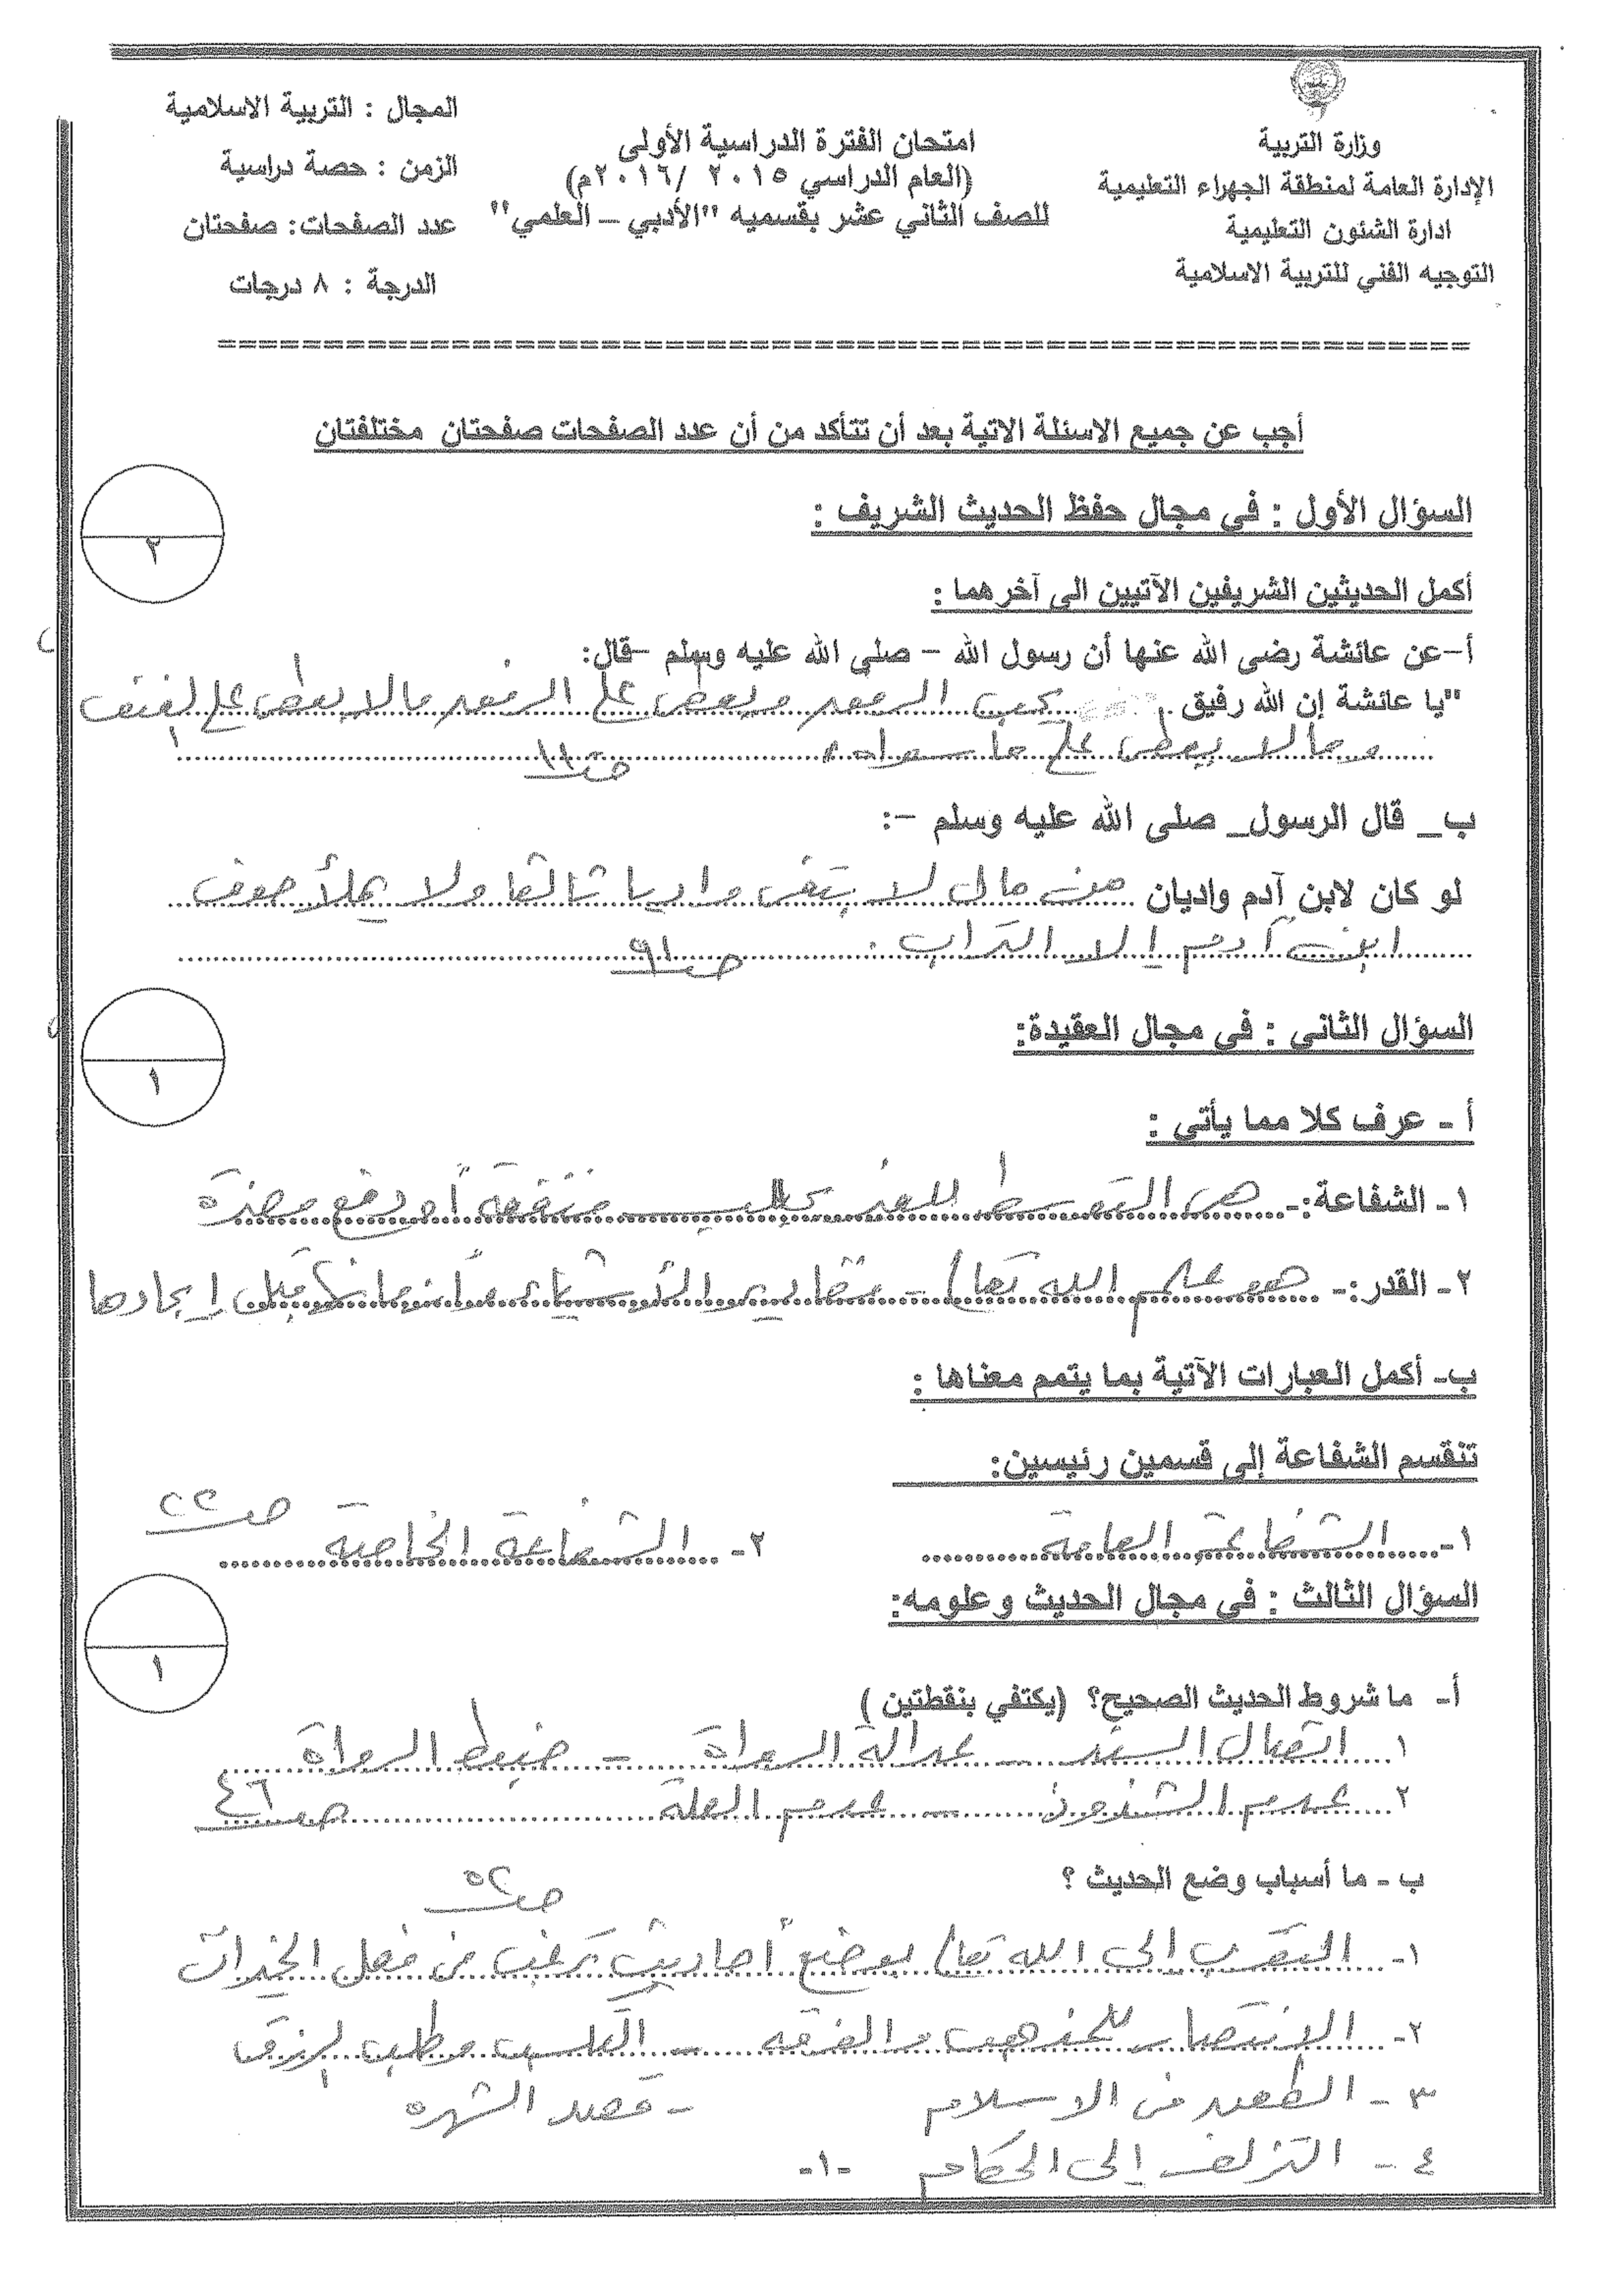 وزارة التربية
الإدارة العامة لمنطقة الجهراء التعليمية
ادارة الشئون التعليمية
التوجيه الفني للتربية الاسلامية
امتحان الفترة الدراسية الأولى
(العام الدراسي ٢٠١٥ /٢٠١٦م)
للصف الثاني عشر بقسميه "الأدبي – العلمي"
المجال : التربية الاسلامية
الزمن : حصة دراسية
عدد الصفحات: صفحتان
الدرجة : ٨ درجات
أجب عن جميع الاسئلة الاتية بعد أن تتأكد من أن عدد الصفحات صفحتان مختلفتان
السؤال الأول : في مجال حفظ الحديث الشريف :
٢
أكمل الحديثين الشريفين الآتيين الى آخرهما :
أ-عن عائشة رضى الله عنها أن رسول الله – صلى الله عليه وسلم –قال:
"يا عائشة إن الله رفيق يحب الرفق ويعطي على الرفق مالا يعطي على العنف
وما لا يعطي على ما سواه" ص١١
ب_ قال الرسول_ صلى الله عليه وسلم –:
لو كان لابن آدم واديان من مال لابتغى واديا ثالثا ولا يملأ جوف
ابن آدم إلا التراب . ص٩١
السؤال الثاني : في مجال العقيدة:
١
أ - عرف كلا مما يأتي :
١- الشفاعة:- هي التوسط للغير بجلب منفعة أو دفع مضرة
٢- القدر:- هو علم الله تعالى بمقادير الأشياء وأزمانها قبل إيجادها
ب- أكمل العبارات الآتية بما يتمم معناها :
تنقسم الشفاعة إلى قسمين رئيسين:
١- الشفاعة العامة ٢- الشفاعة الخاصة ص٢٢
السؤال الثالث : في مجال الحديث وعلومه:
١
أ- ما شروط الحديث الصحيح؟ (يكتفي بنقطتين )
١ اتصال السند – عدالة الرواة – ضبط الرواة
٢ عدم الشذوذ – عدم العلة ص٤٦
ب - ما أسباب وضع الحديث ؟
ص٥٢
١- التقرب إلى الله تعالى بوضع أحاديث ترغب في فعل الخيرات
٢- الانتصار للمذهب والفرقة – التكسب وطلب الرزق
٣ - الطعن في الاسلام - قصد الشهرة
٤ - التزلف إلى الحكام
-١-